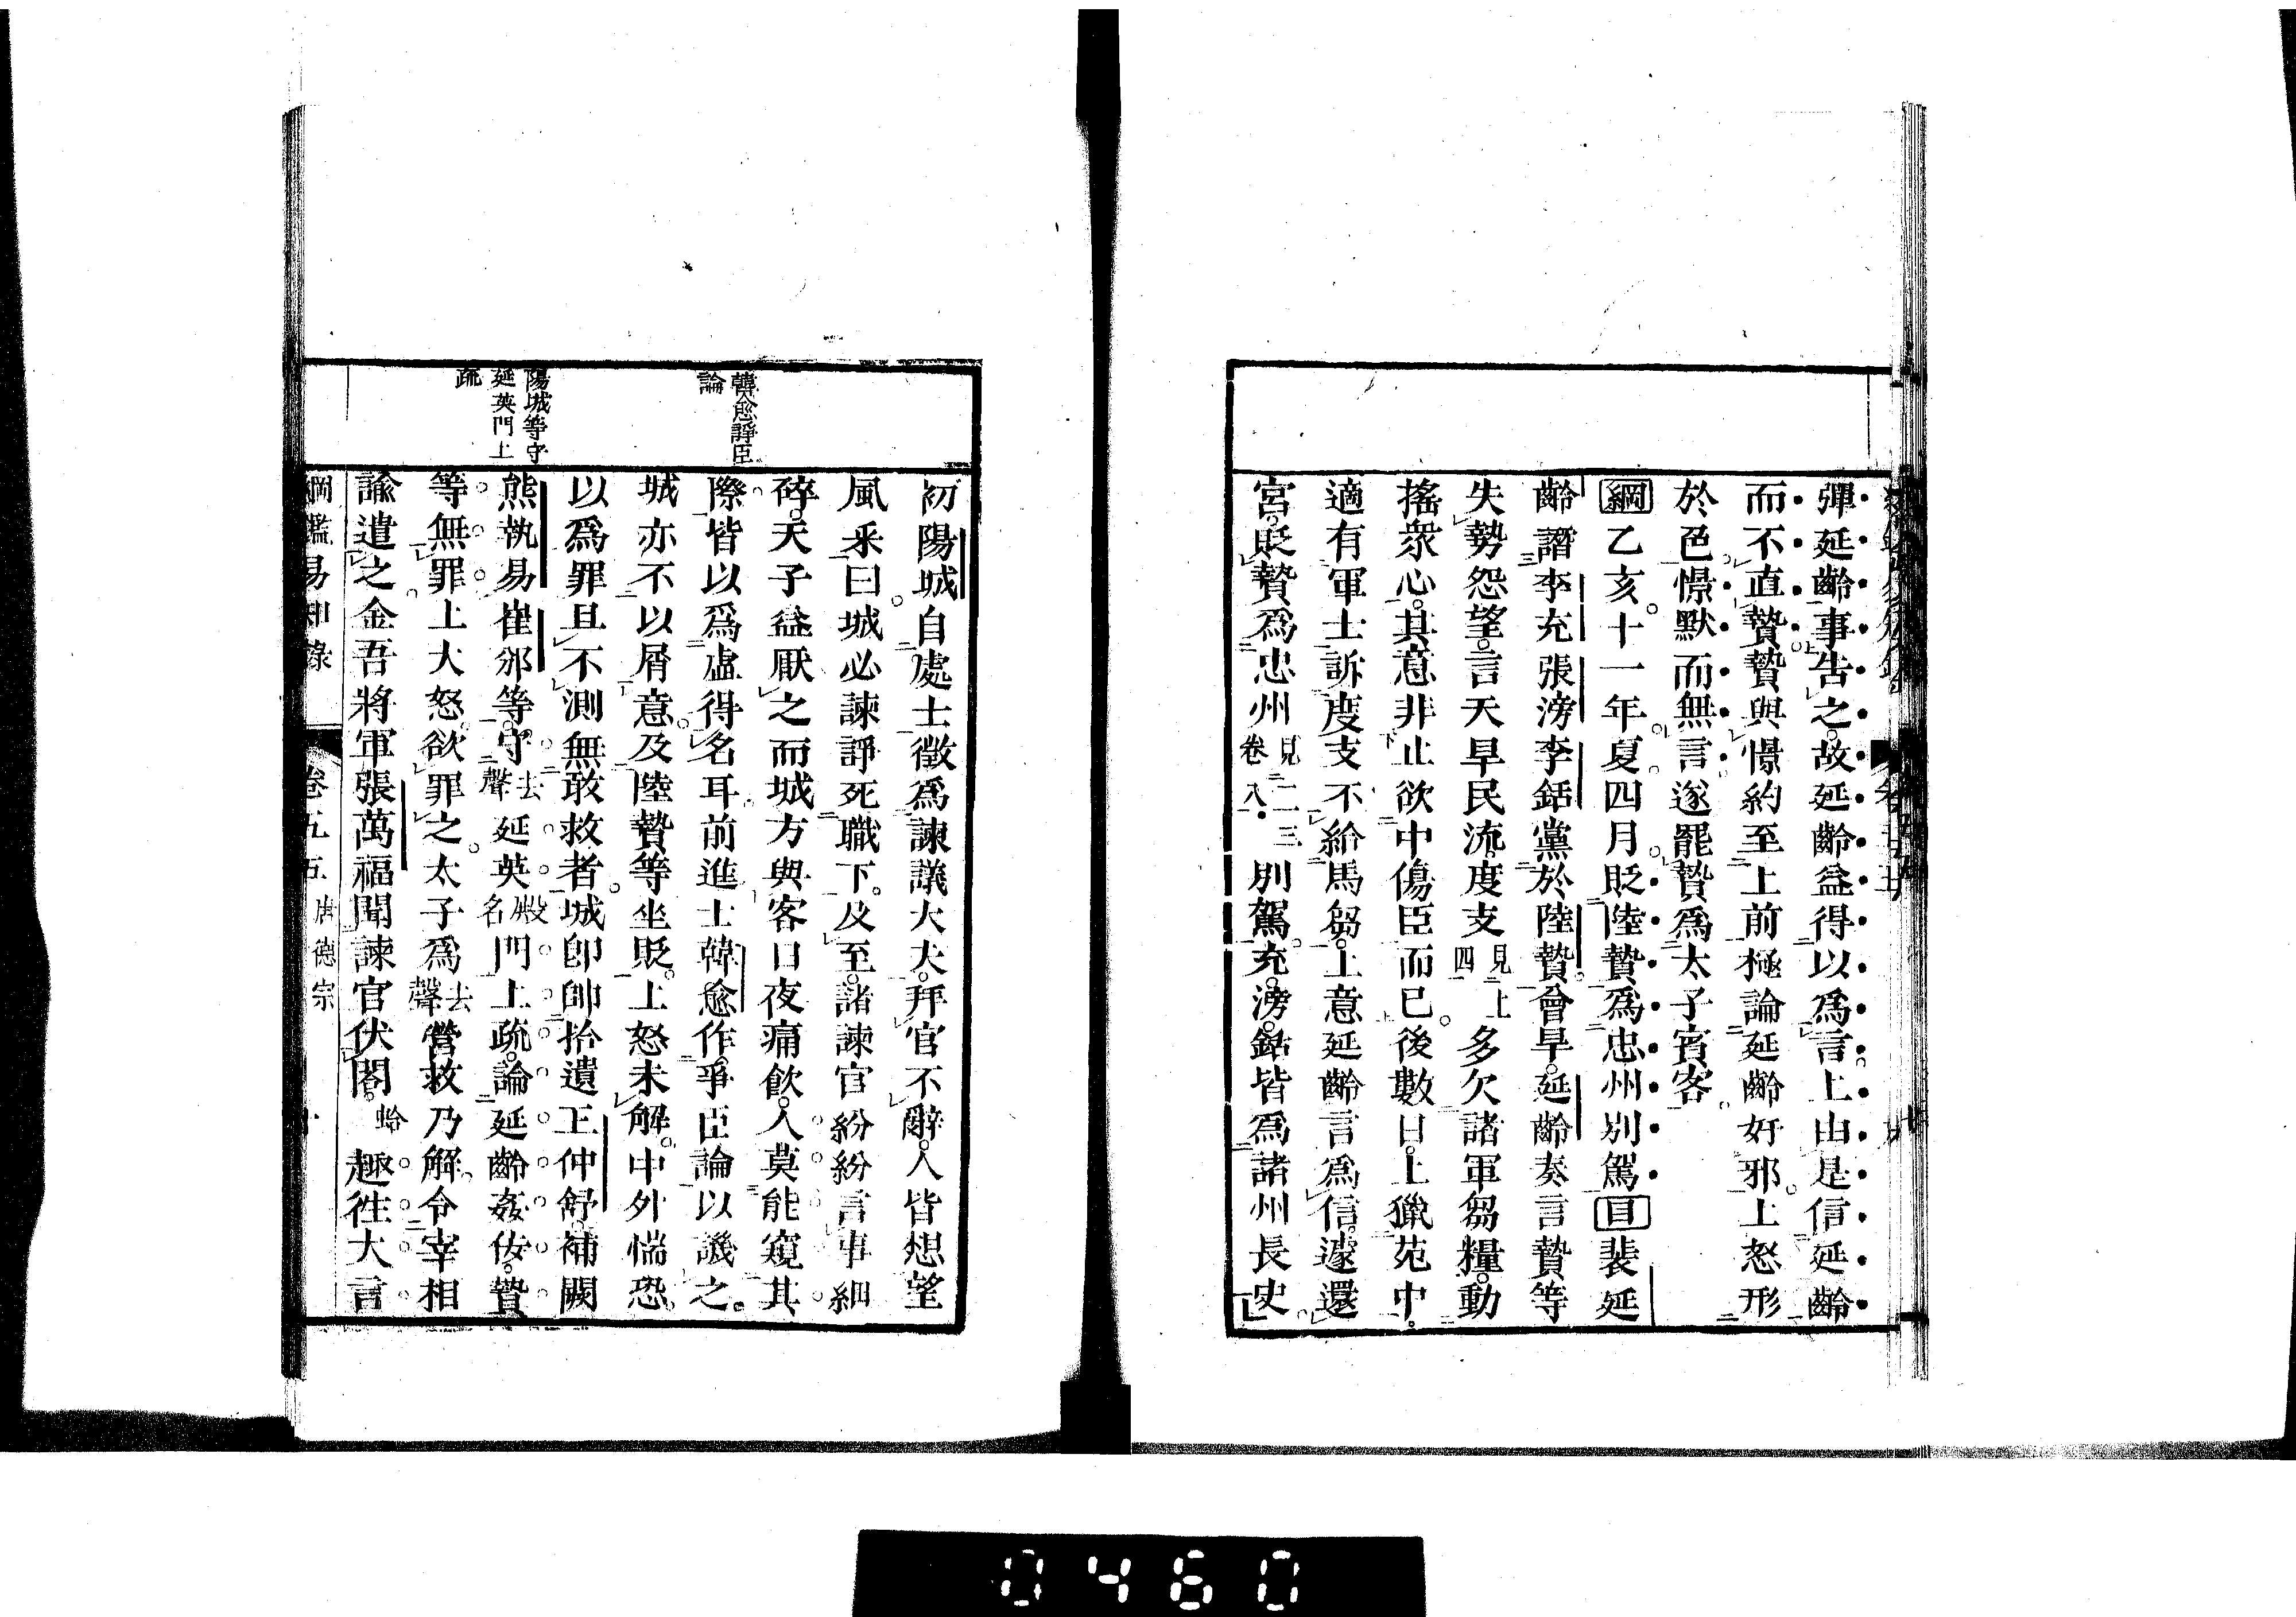 彈延齡事告之故延齡益得以爲言上由是信延齡
而不直贄贄與憬約至上前極論延齡奸邪上怒形
於色憬默而無言遂罷贄爲太子賓客
綱乙亥十一年夏四月貶陸贄爲忠州別駕目裴延
齡譖李充張滂李銛黨於陸贄會旱延齡奏言贄等
失勢怨望言天旱民流度支見上四多欠諸軍芻糧動
搖衆心其意非止欲中傷臣而已後數日上獵苑中
適有軍士訴度支不給馬芻上意延齡言爲信遽還
宮貶贄爲忠州見二三卷八別駕充滂銛皆爲諸州長史
韓愈諍臣
論
陽城等守
延英門上
疏
初陽城自處士徵爲諫議大夫拜官不辭人皆想望
風采曰城必諫諍死職下及至諸諫官紛紛言事細
碎天子益厭之而城方與客日夜痛飲人莫能窺其
際皆以爲虛得名耳前進士韓愈作爭臣論以譏之
城亦不以屑意及陸贄等坐貶上怒未解中外惴恐
以爲罪且不測無敢救者城卽帥拾遺王仲舒補闕
熊執易崔邠等守去聲延英殿名門上疏論延齡姦佞贄
等無罪上大怒欲罪之太子爲去聲營救乃解令宰相
諭遣之金吾將軍張萬福聞諫官伏閤蛤趨往大言
綱鑑易知錄 卷五五 唐德宗
0460